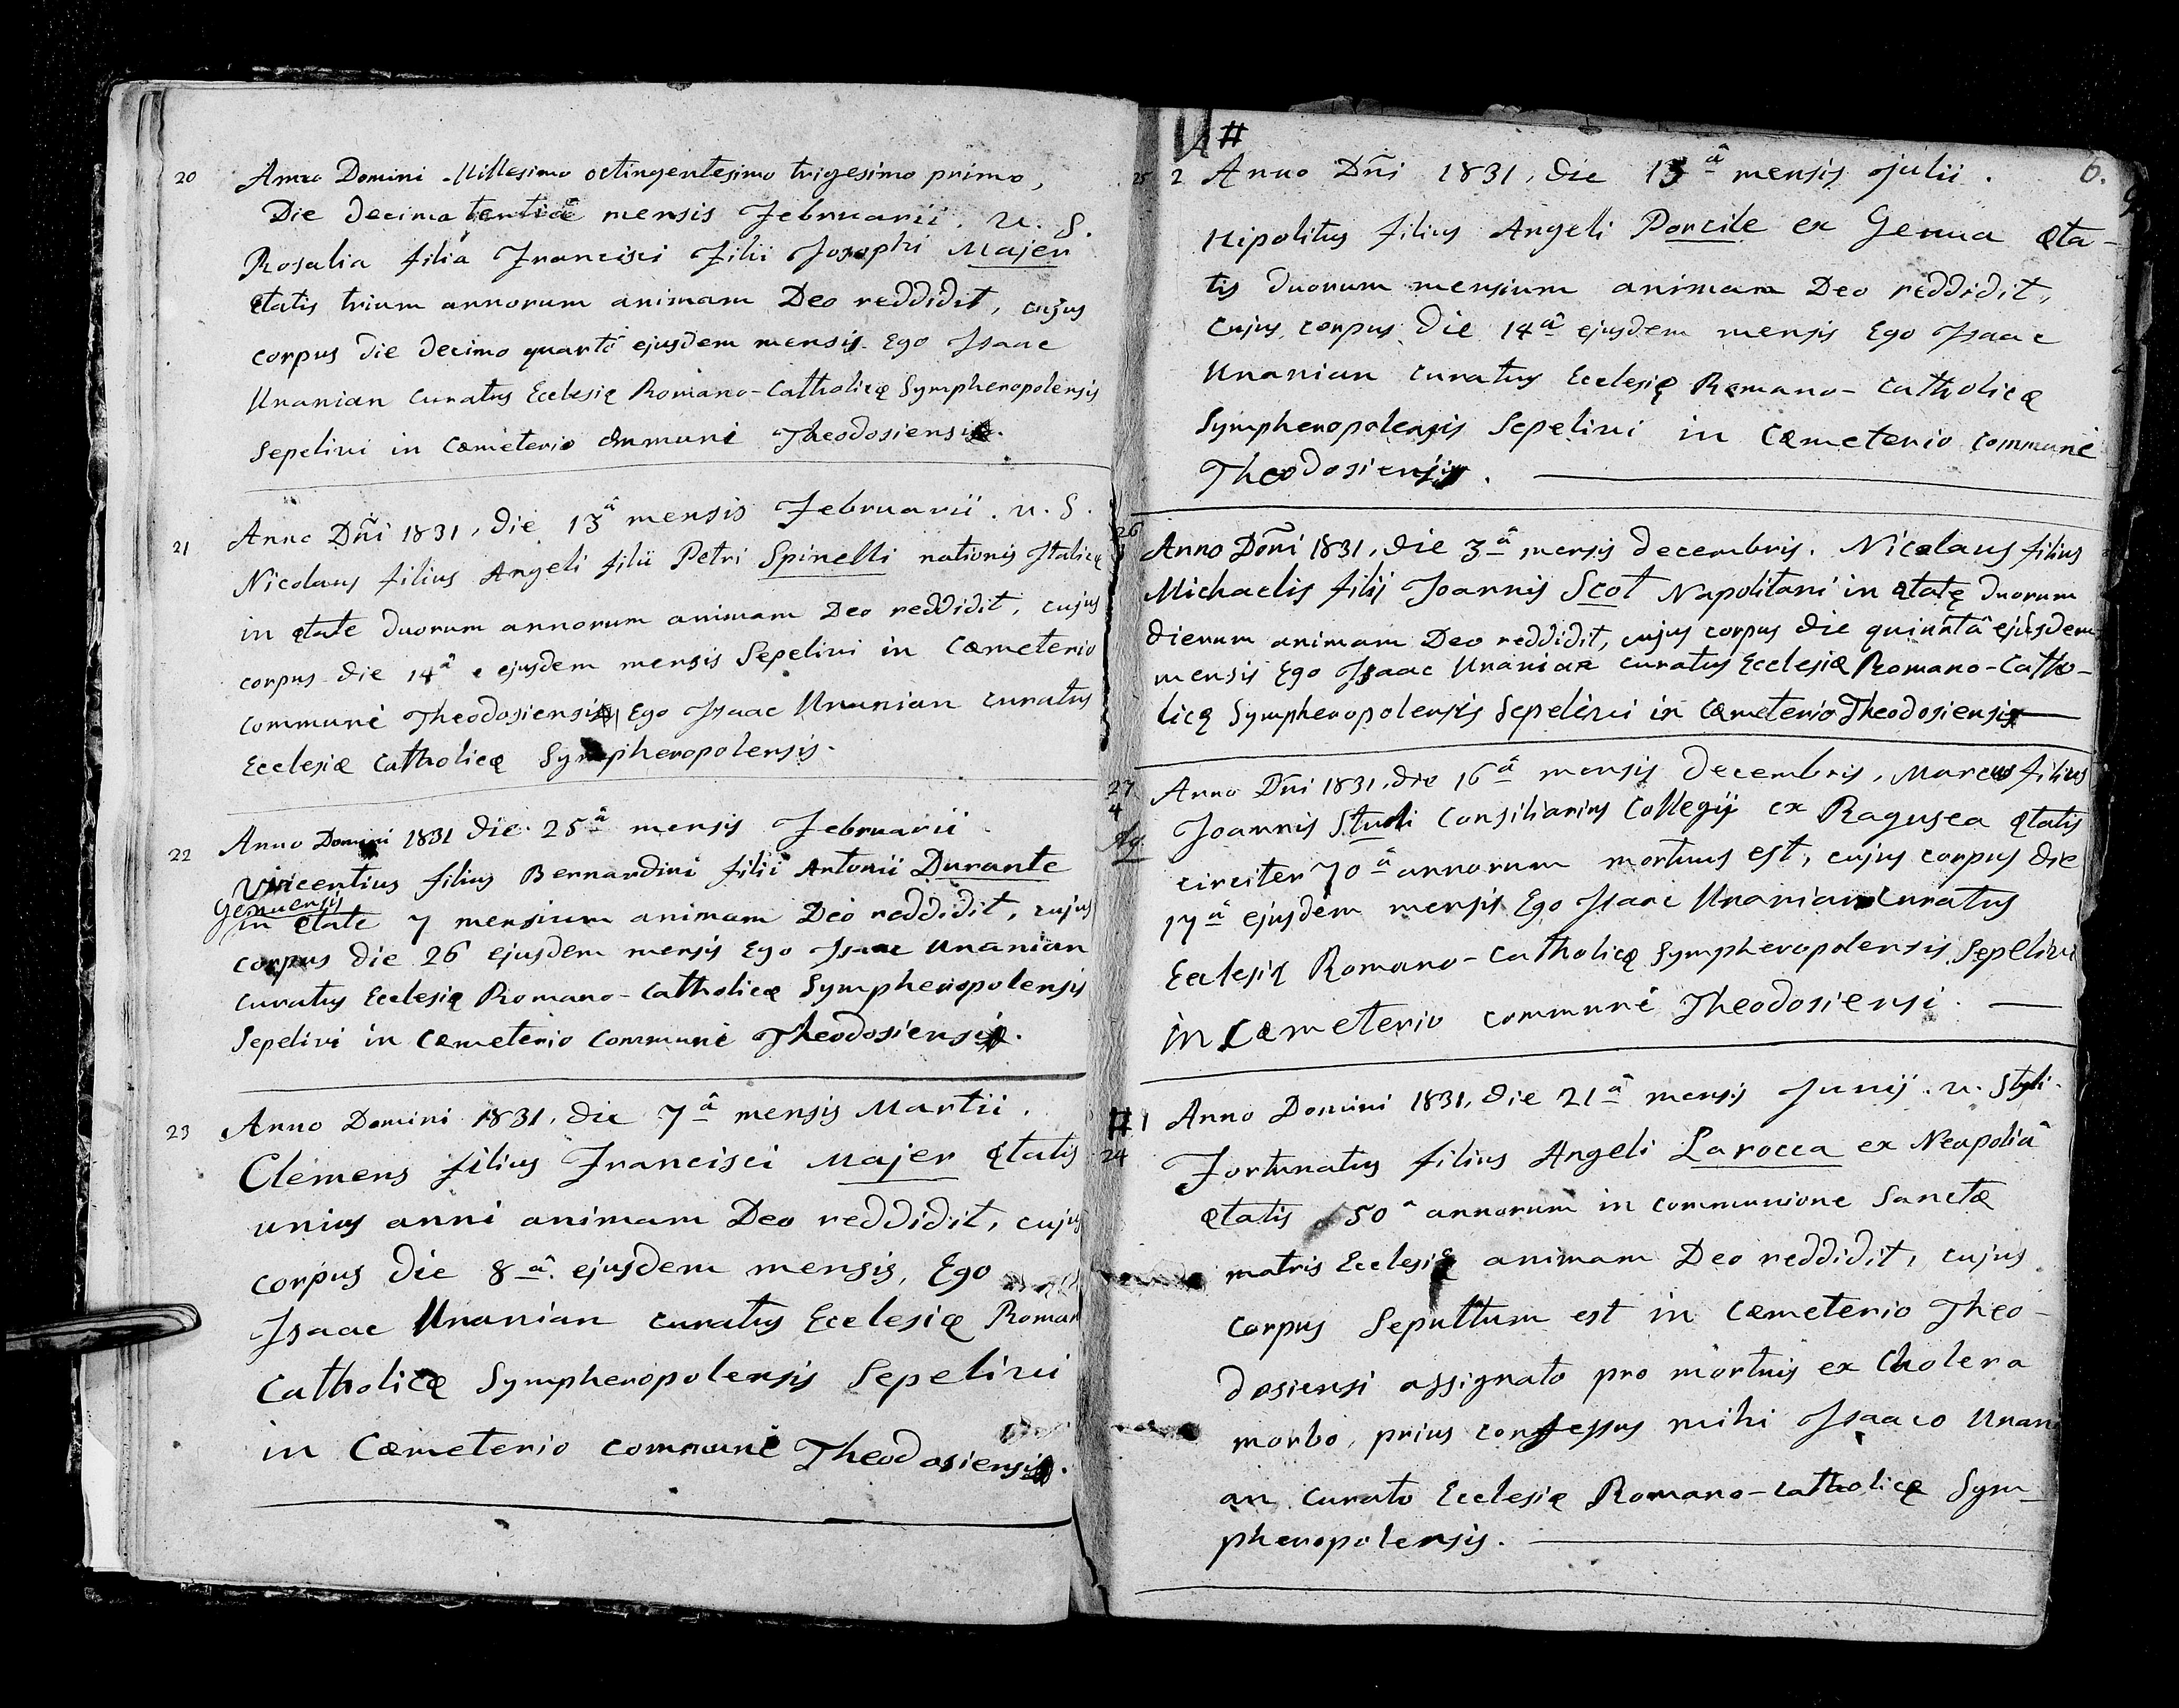 20 Anno Domini Millesimo octingentesimo trigesimo primo,
Die decima tertiâ mensis Februarii. v. S.
Rosalia filia Francisci Filii Josephi Majer
ętatis trium annorum animam Deo reddidit, cujus
corpus die decimo quartô ejusdem mensis Ego Isaac
Unanian Curatus Ecclesię Romano-Catholicę Sympheropolensis
Sepelivi in Cæmeterio communi Theodosiensi.
21 Anno Dñi 1831, die 13â mensis Februarii. v. S.
Nicolaus filius Angeli filii Petri Spinelli nationis Italicę
in ętate duorum annorum animam Deo reddidit, cujus
corpus die 14â ejusdem mensis Sepelivi in Cæmeterio
communi Theodosiensi Ego Isaac Unanian curatus
Ecclesiæ Catholicę Sympheropolensis.
22 Anno Domini 1831 die 25â mensis Februarii
Vincentius filius Bernardini filii Antonii Durante
Genuensis
in ętate 7 mensium animam Deo reddidit, cujus
corpus die 26 ejusdem mensis Ego Isaac Unanian
curatus Ecclesię Romano-Catholicæ Sympheropolensis
Sepelivi in Cæmeterio Communi Theodosiensi.
23 Anno Domini 1831, die 7â mensis Martii.
Clemens filius Francisci Majer ętatis
unius anni animam Deo reddidit, cujus
corpus die 8â ejusdem mensis, Ego
Isaac Unanian curatus Ecclesię Roman
Catholicæ Sympheropolensis Sepelivi
in Cæmeterio communi Theodosiensi.
#
25 2 Anno Dñi 1831, die 13â mensis Julii. 6.
Hipolitus filius Angeli Porcile ex Genua ęta-
tis duorum mensium animam Deo reddidit,
cujus corpus die 14â ejusdem mensis Ego Isaac
Unanian curatus Ecclesię Romano-Catholicæ
Sympheropolensis Sepelivi in Cæmeterio communi
Theodosiensi.
26
Anno Doñi 1831, die 3â mensis decembris. Nicolaus filius
Michaelis filij Joannis Scot Napolitani in ętatę duorum
dierum animam Deo reddidit, cujus corpus die quinntâ ejusdem
mensis Ego Isaac Unanian curatus Ecclesiæ Romano-Catho-
licę Sympheropolensis Sepelivi in Cæmeterio Theodosiensi
27
4 Anno Dñi 1831, die 16â mensis decembris, Marcus filius
Joannis Studi Consiliarius Collegij ex Ragusea ętatis
circiter 70â annorum mortuus est, cujus corpus die
17â ejusdem mensis Ego Isaac Unanian Curatus
Ecclesię Romano-Catholicę Sympheropolensis Sepelivi
in Cæmeterio communi Theodosiensi.
# 1 Anno Domini 1831, die 21â mensis Junij. v. Styli.
24 Fortunatus filius Angeli Larocca ex Neapoliâ
ętatis 50â annorum in communione Sanctæ
matris Ecclesię animam Deo reddidit, cujus
corpus Sepultum est in Cæmeterio Theo-
dosiensi assignato pro mortuis ex Cholera
morbo, prius confessus mihi Isaaco Unani
an curato Ecclesię Romano-Catholicę Sym-
pheropolensis.